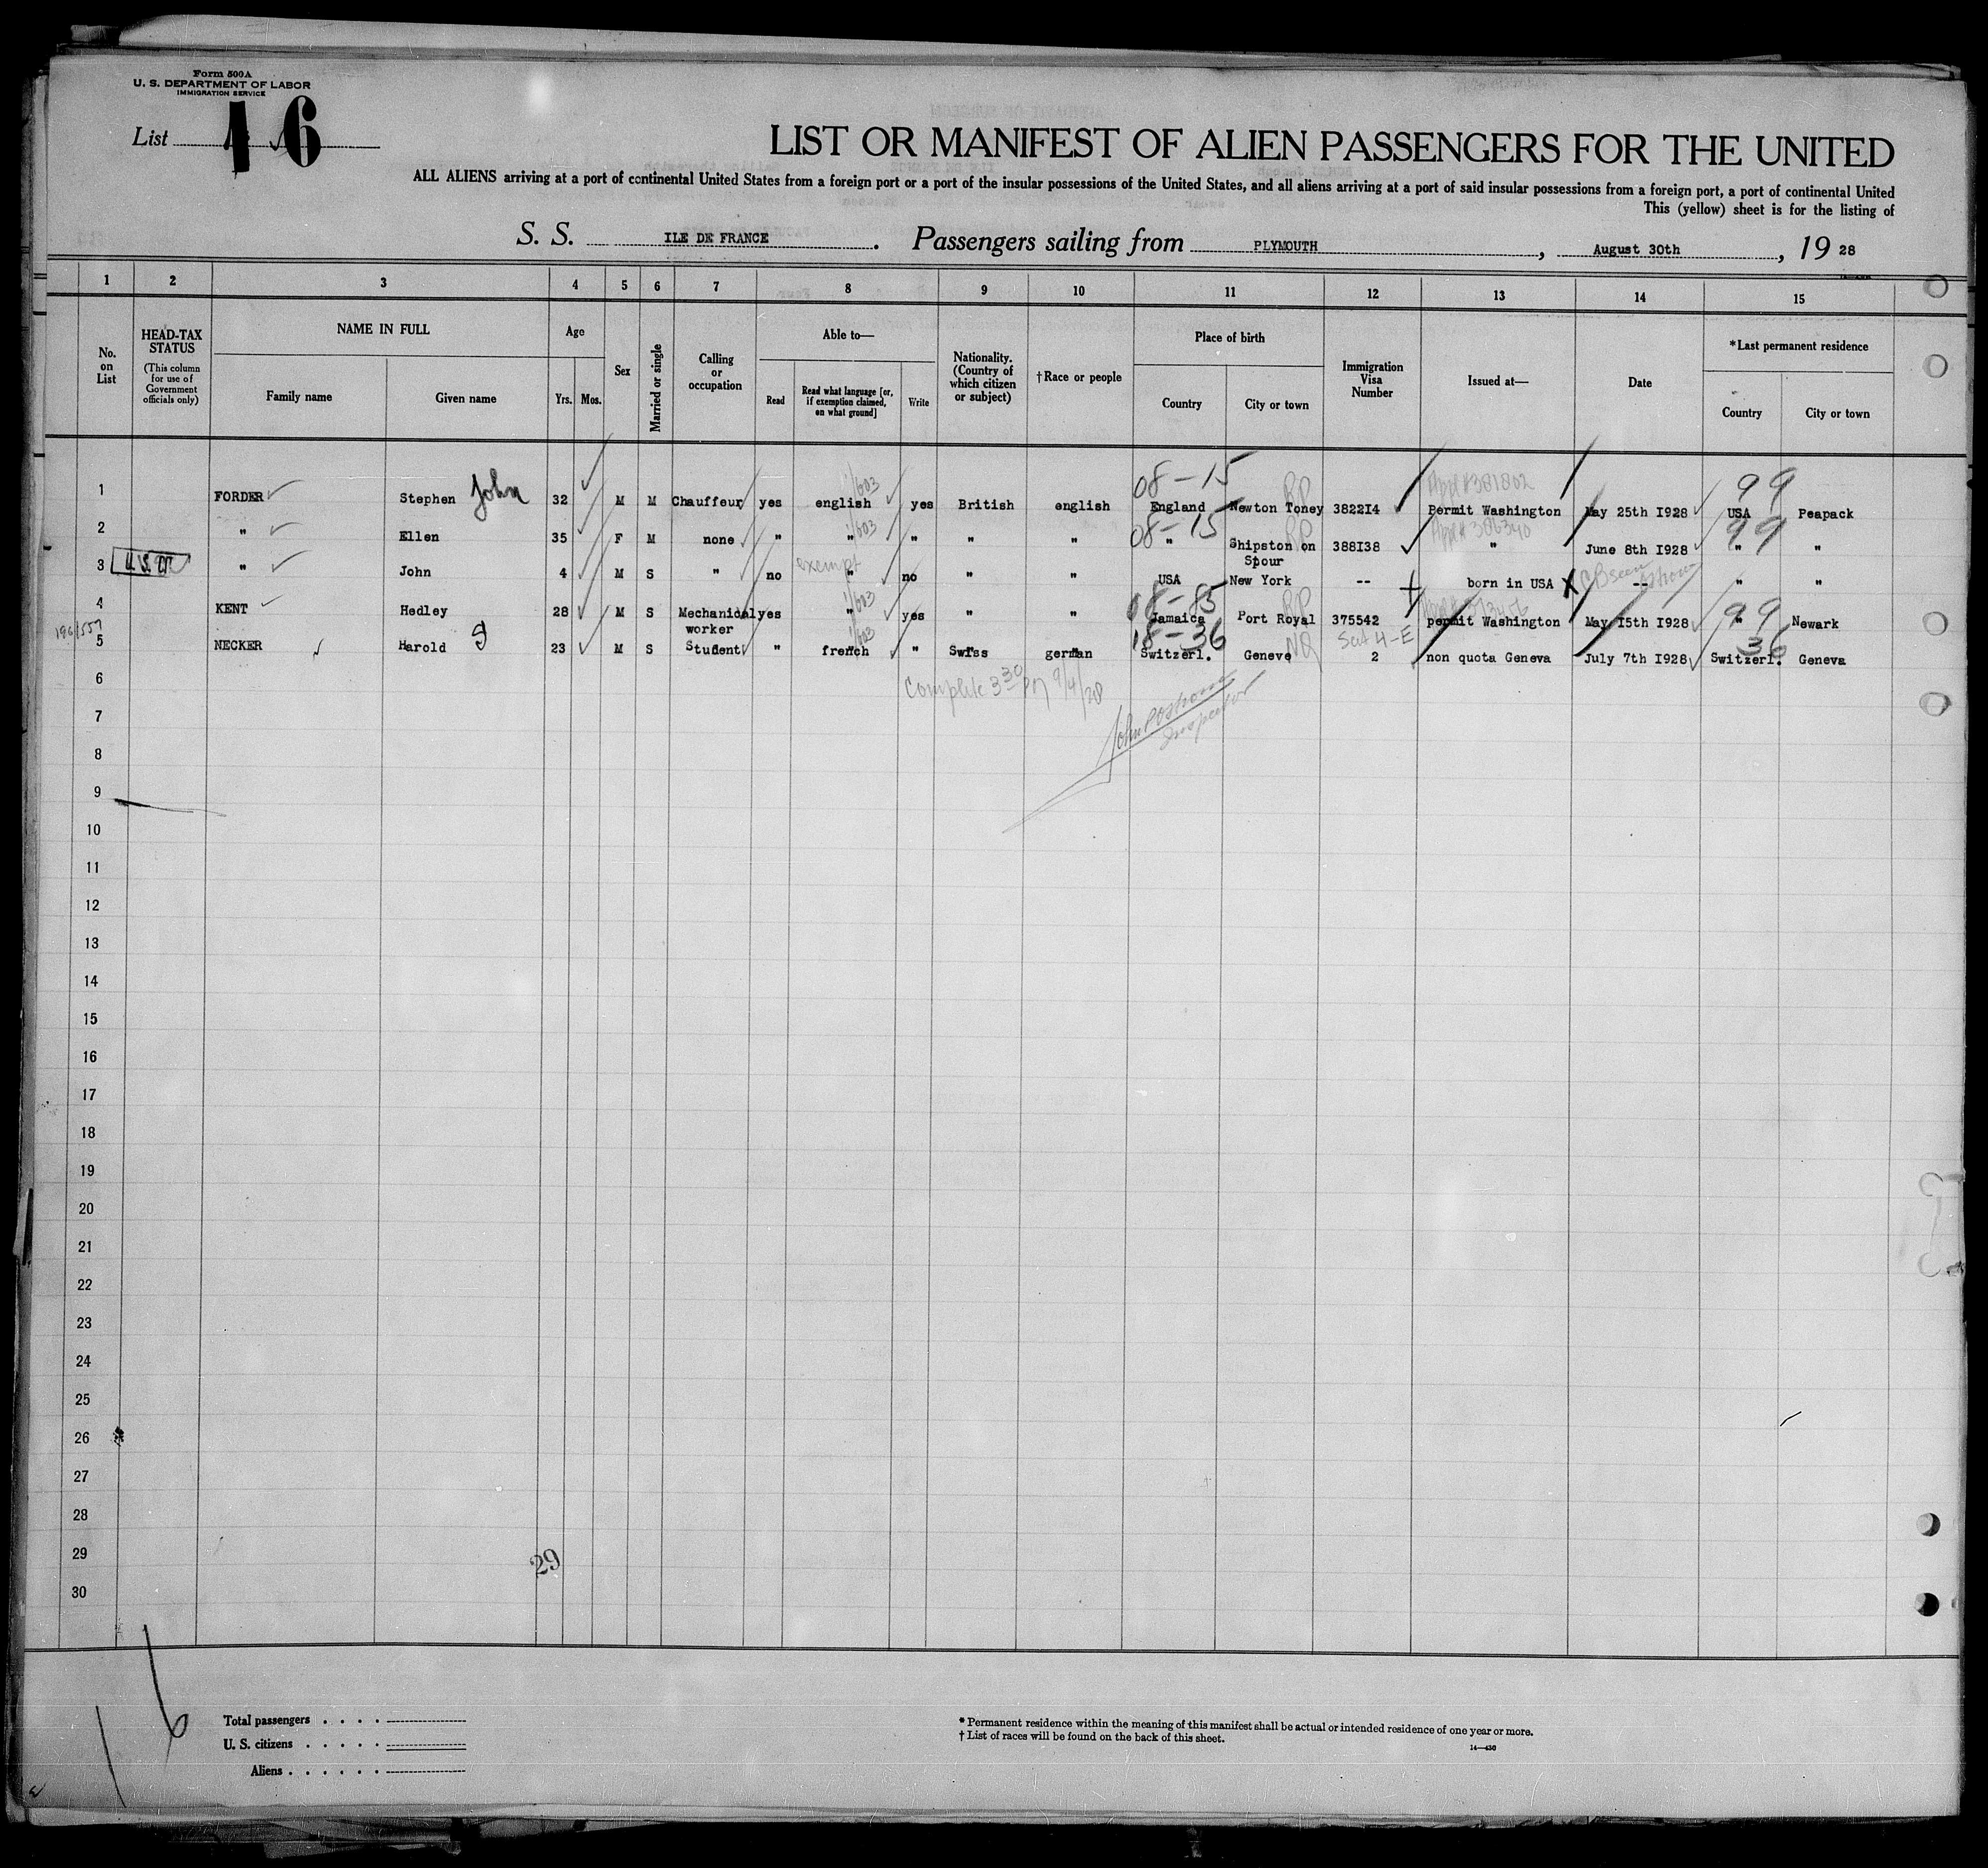 Form 500A
U. S. DEPARTMENT OF LABOR
IMMIGRATION SERVICE
List 16
LIST OR MANIFEST OF ALIEN PASSENGERS FOR THE UNITED
ALL ALIENS arriving at a port of continental United States from a foreign port or a port of the insular possessions of the United States, and all aliens arriving at a port of said insular possessions from a foreign port, a port of continental United
This (yellow) sheet is for the listing of
S. S. ILE DE FRANCE. Passengers sailing from PLYMOUTH, August 30th, 19 28
1 2 3 4 5 6 7 8 9 10 11 12 13 14 15
No. on List
HEAD-TAX STATUS
(This column for use of Government officials only)
NAME IN FULL
Family name
Given name
Age
Yrs. Mos.
Sex
Married or single
Calling or occupation
Able to—
Read
Read what language [or, if exemption claimed, on what ground]
Write
Nationality. (Country of which citizen or subject)
†Race or people
Place of birth
Country
City or town
Immigration Visa Number
Issued at—
Date
*Last permanent residence
Country
City or town
08-15 RP Appl #381802 99
1 FORDER Stephen John 32 M M Chauffeur yes english 1/603 yes British english England Newton Toney 382214 Permit Washington May 25th 1928 USA Peapack
08-15 RP 99
2 " Ellen 35 F M none " " 1/603 " " " " Shipston on Spour 388138 " June 8th 1928 " "
3 U.S. " John 4 M S " no exempt " no " " USA New York -- born in USA -- " "
08-85 RP 99
4 KENT Hedley 28 M S Mechanical worker yes " 1/603 yes " " Jamaica Port Royal 375542 permit Washington May 15th 1928 " Newark
18-36 NQ Sect 4-E 36
5 NECKER Harold G 23 M S Student " french 1/603 " Swiss german Switzerl. Geneve 2 non quota Geneva July 7th 1928 Switzerl. Geneva
6
Complete 3 30 PM 9/4/28
Inspector
7
8
9
10
11
12
13
14
15
16
17
18
19
20
21
22
23
24
25
26
27
28
29
29
30
16
Total passengers . . . .
U. S. citizens . . . . .
Aliens . . . . . .
* Permanent residence within the meaning of this manifest shall be actual or intended residence of one year or more.
† List of races will be found on the back of this sheet.
14—430